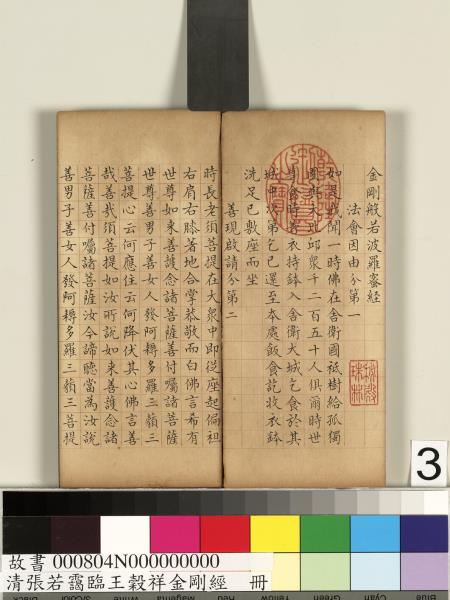 金剛般若波羅蜜經
法會因由分第一
如是我聞一時佛在舍衛國祇樹給孤獨
園與大比邱眾千二百五十人俱爾時世
尊食時著衣持鉢入舍衛大城乞食於其
城中次第乞已還至本處飯食訖收衣鉢
洗足已敷座而坐
善現啟請分第二
時長老須菩提在大眾中即從座起偏袒
右肩右膝著地合掌恭敬而白佛言希有
世尊如來善護念諸菩薩善付囑諸菩薩
世尊善男子善女人發阿耨多羅三藐三
菩提心云何應住云何降伏其心佛言善
哉善哉須菩提如汝所說如來善護念諸
菩薩善付囑諸菩薩汝今諦聽當為汝說
善男子善女人發阿耨多羅三藐三菩提
3
故書 000804N000000000
清張若靄臨王穀祥金剛經 冊
Black
3/Color
White
Magenta
Red
Yellow
Green
Cyan
Blue